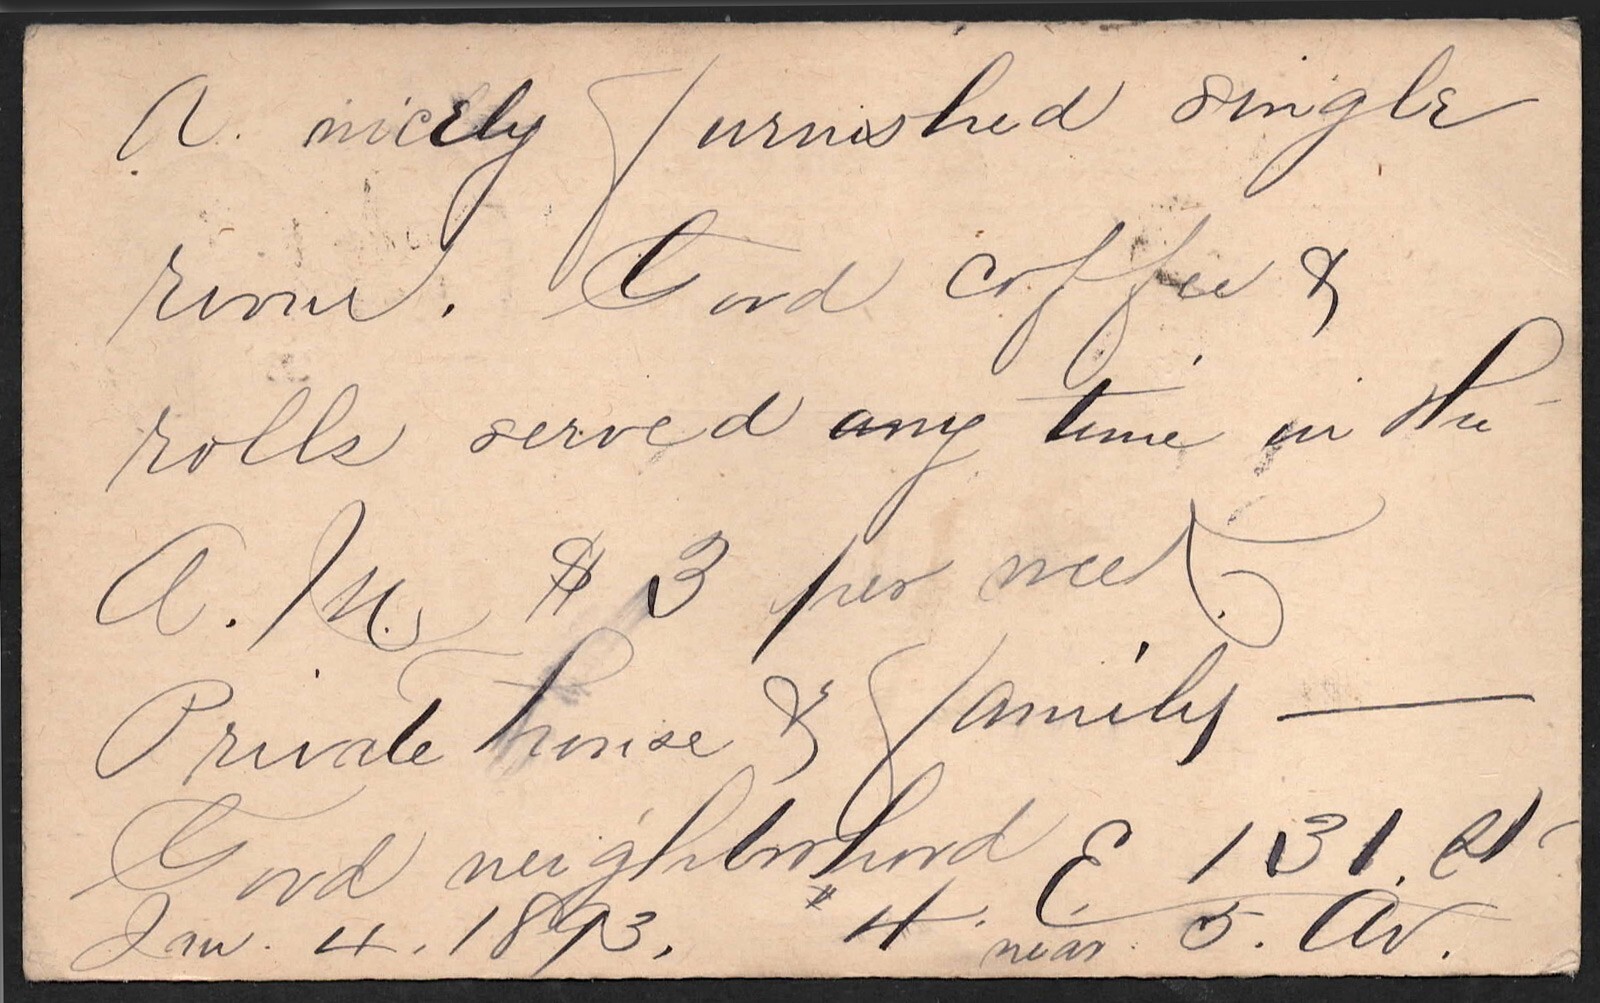 A. nicely furnished single
room. Good coffee &
rolls served any time in the
A. M. $ 3 per week.
Private house & family —
Good neighborhood E 131. st
Jan. 4. 1893. # 4. near 5. Av.